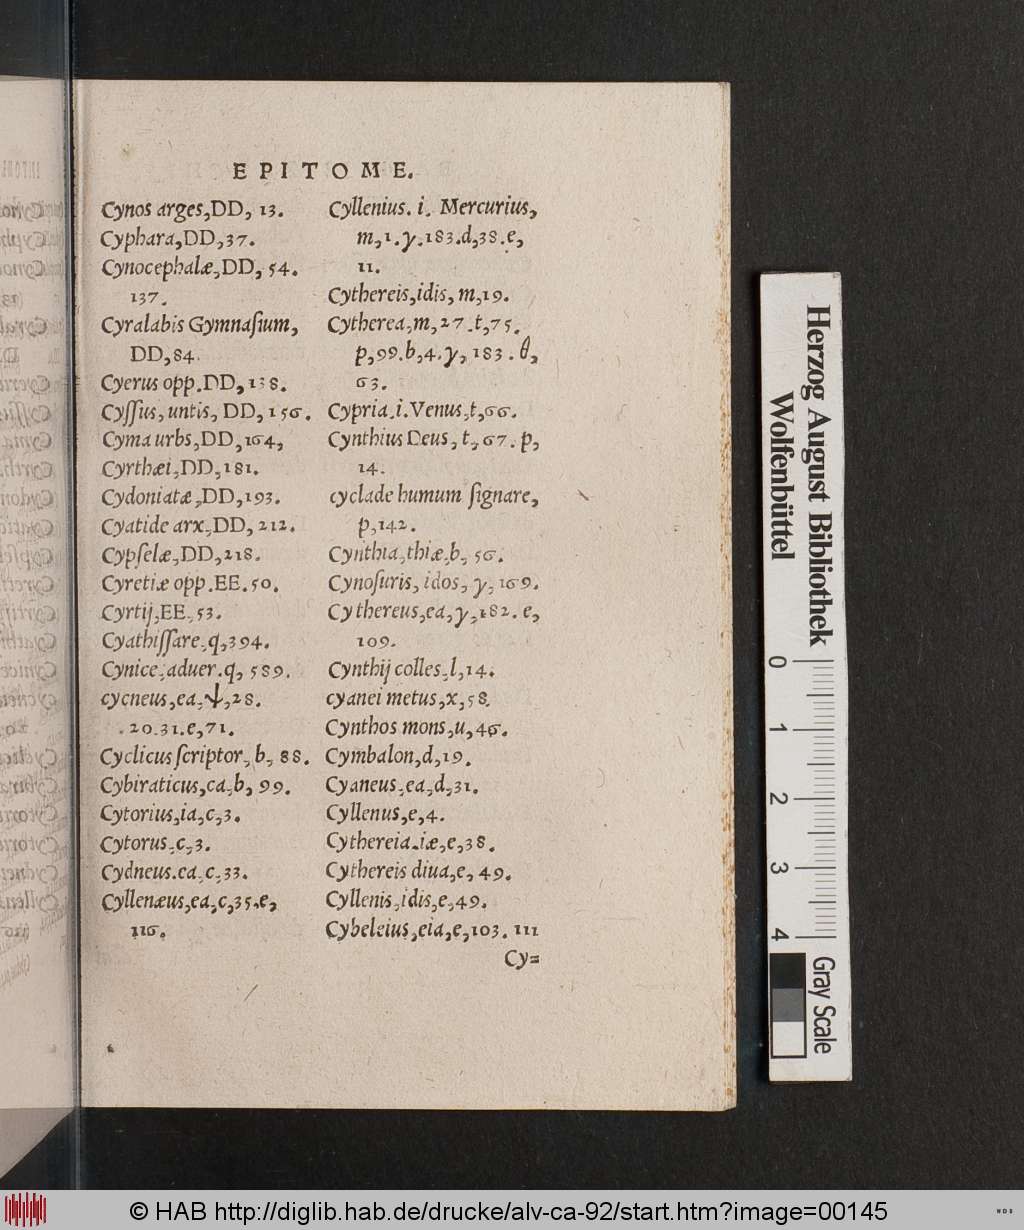 EPITOME.
Cynos arges,DD, 13.
Cyphara,DD,37.
Cynocephalæ,DD, 54.
137.
Cyralabis Gymnaſium,
DD,84.
Cyerus opp.DD, 138.
Cyſſus, untis, DD, 156.
Cyma urbs,DD,164,
Cyrthæi,DD,181.
Cydoniatæ,DD,193.
Cyatide arx,DD, 212.
Cypſelæ,DD,218.
Cyretiæ opp.EE.50.
Cyrtij,EE,53.
Cyathiſſare,q,394.
Cynice,aduer.q, 589.
cycneus,ea,ψ,28.
.20.31.e,71.
Cyclicus ſcriptor, b, 88.
Cybiraticus,ca,b, 99.
Cytorius,ia,c,3.
Cytorus,c,3.
Cydneus.ea,c,33.
Cyllenæus,ea,c,35.e,
116.
Cyllenius. i. Mercurius,
m,1.γ.183.d,38.e,
11.
Cythereis,idis, m,19.
Cytherea,m,27.t,75.
p,99.b,4.γ, 183.θ,
63.
Cypria.i.Venus,t,66.
Cynthius Deus, t, 67. p,
14.
cyclade humum ſignare,
p,142.
Cynthia,thiæ,b, 56.
Cynoſuris, idos, γ, 169.
Cythereus,ea,γ,182. e,
109.
Cynthij colles,l,14.
cyanei metus,x,58.
Cynthos mons,u,46.
Cymbalon,d,19.
Cyaneus,ea,d,31.
Cyllenus,e,4.
Cythereia.iæ,e,38.
Cythereis diua,e, 49.
Cyllenis,idis,e,49.
Cybeleius,eia,e,103. 111
Cy=
Herzog August Bibliothek
Wolfenbüttel
0 1 2 3 4
Gray Scale
© HAB http://diglib.hab.de/drucke/alv-ca-92/start.htm?image=00145